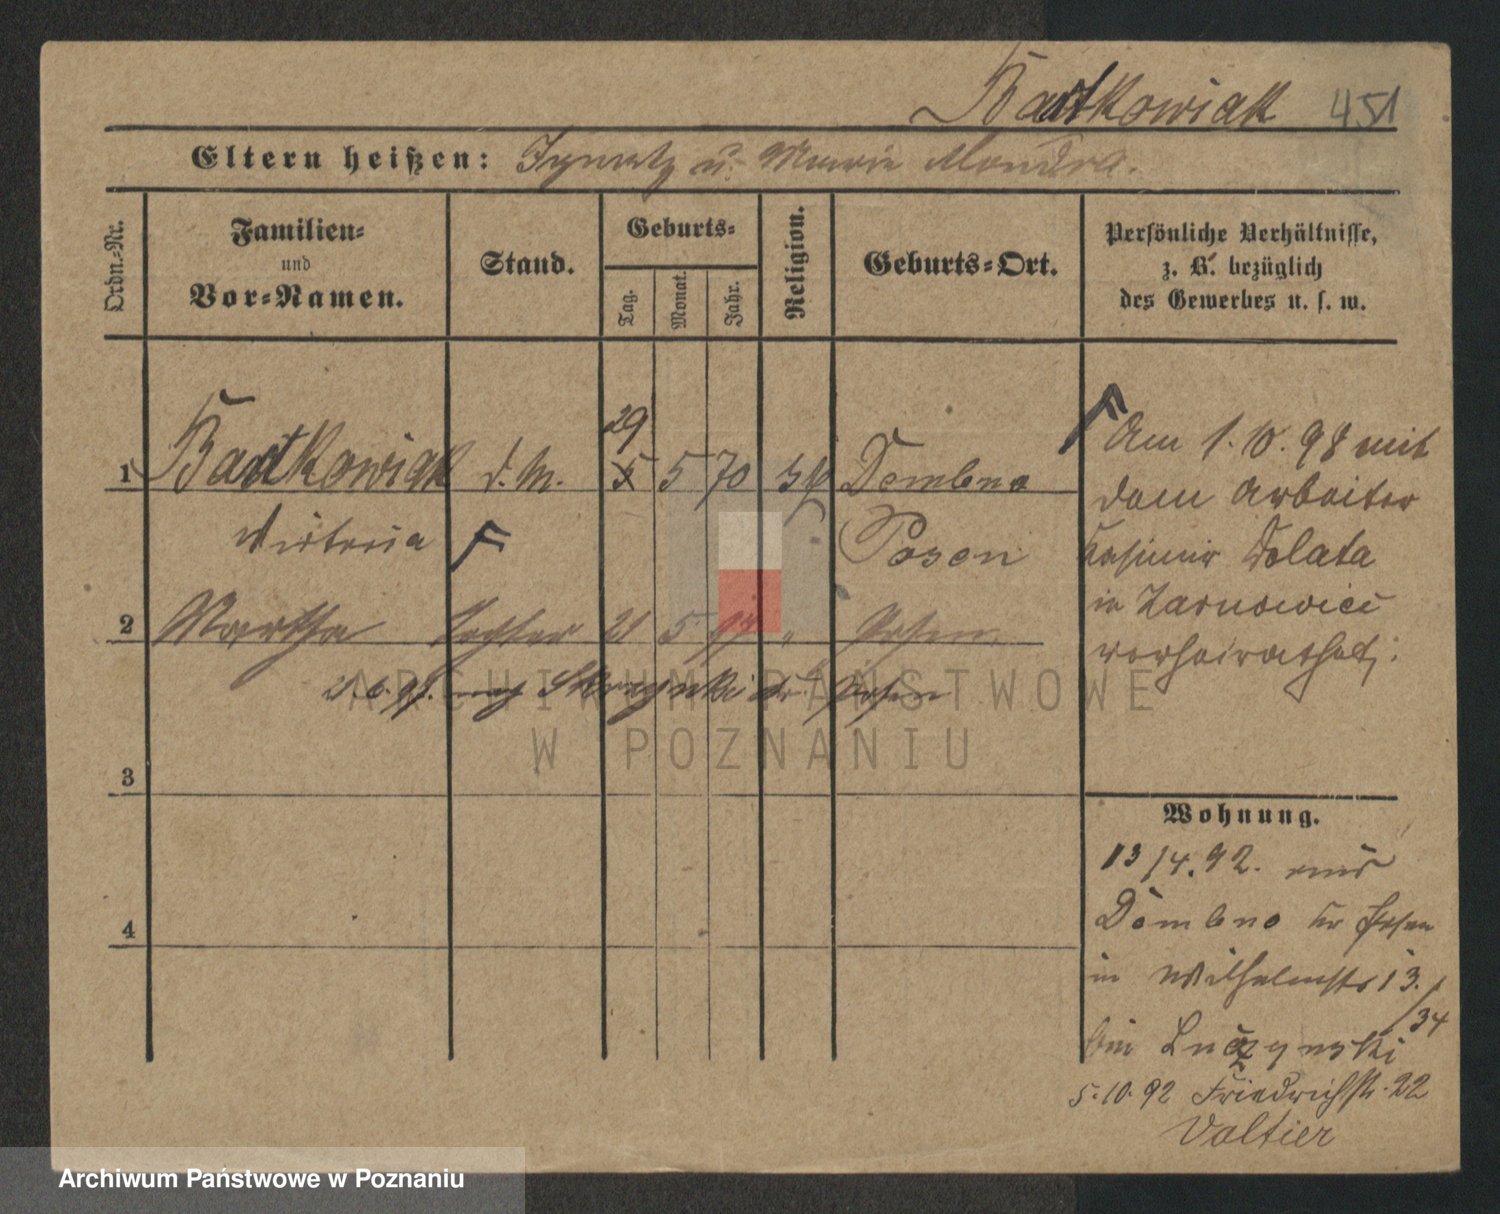 Bartkowiak 451
Eltern heißen: Ignatz u. Marie Mondra.
Ordn.-Nr.
Familien-
und
Vor-Namen.
Stand.
Geburts-
Tag.
Monat.
Jahr.
Religion.
Geburts-Ort.
Persönliche Verhältnisse,
z. B. bezüglich
des Gewerbes u. s. w.
1 Bartkowiak d. M. 29 5 70 Dembno
Victoria Posen
2 Martha Tochter 21 5 " Posen
21.6.97. nach Skrzynki Kr. Posen
3
4
Am 1.10.98 mit
dem Arbeiter
Kasimir Dolata
in Zarnowiec
verheirathet;
Wohnung.
13/4.92. aus
Dembno Kr Posen
in Wilhelmstr 13.
/34
bei
5.10.92 Friedrichstr. 22
Valtier
ARCHIWUM PAŃSTWOWE
W POZNANIU
Archiwum Państwowe w Poznaniu